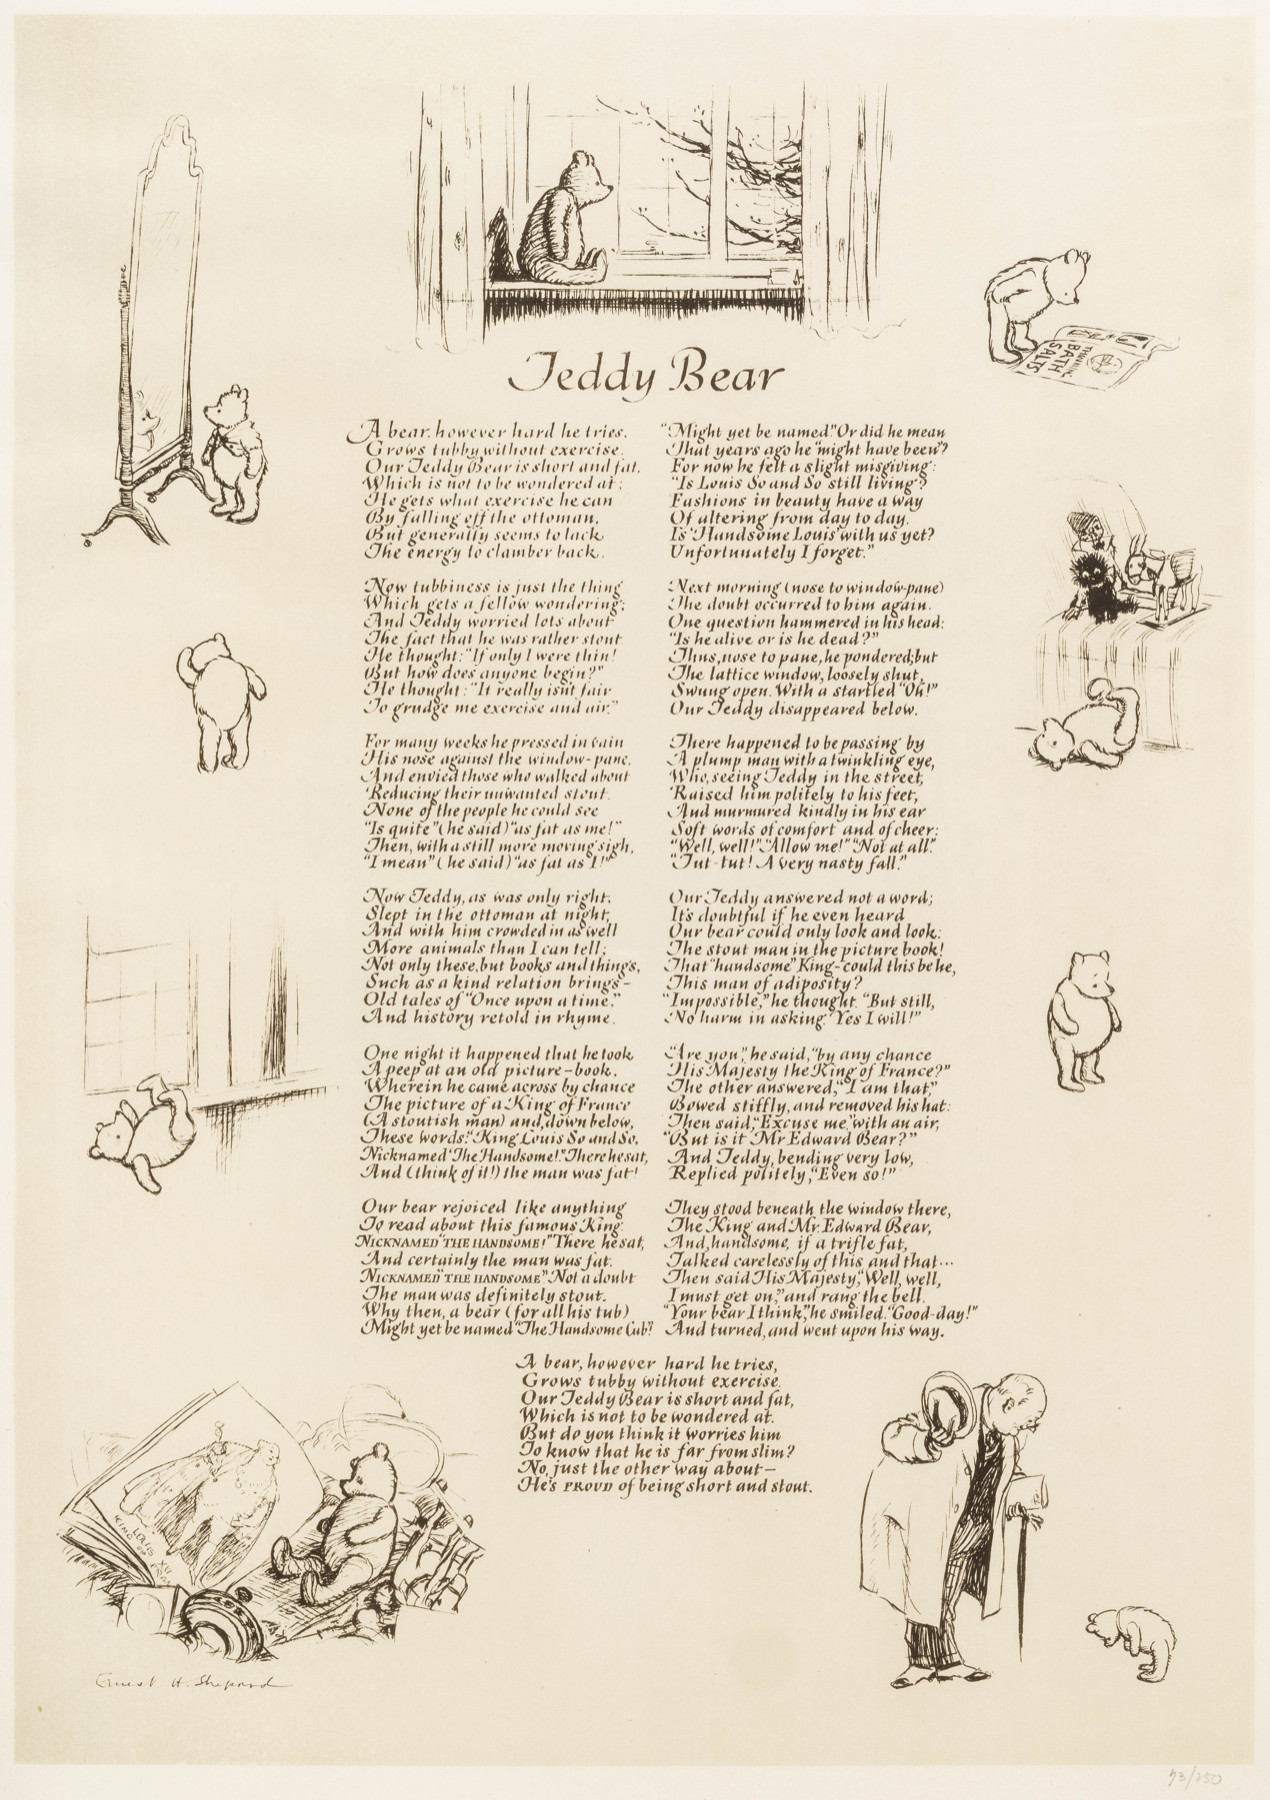 Teddy Bear
A bear, however hard he tries,
Grows tubby without exercise.
Our Teddy Bear is short and fat,
Which is not to be wondered at;
He gets what exercise he can
By falling off the ottoman,
But generally seems to lack
The energy to clamber back.
Now tubbiness is just the thing
Which gets a fellow wondering;
And Teddy worried lots about
The fact that he was rather stout
He thought: "If only I were thin!
But how does anyone begin?"
He thought: "It really isn't fair
To grudge me exercise and air."
For many weeks he pressed in vain
His nose against the window-pane,
And envied those who walked about
Reducing their unwanted stout.
None of the people he could see
"Is quite" (he said) "as fat as me!"
Then, with a still more moving sigh,
"I mean" (he said) "as fat as I!"
Now Teddy, as was only right,
Slept in the ottoman at night,
And with him crowded in as well
More animals than I can tell;
Not only these, but books and things,
Such as a kind relation brings-
Old tales of "Once upon a time,"
And history retold in rhyme.
One night it happened that he took
A peep at an old picture-book,
Wherein he came across by chance
The picture of a King of France
(A stoutish man) and, down below,
These words: "King Louis So and So,
Nicknamed 'The Handsome!'" There he sat,
And (think of it!) the man was fat!
Our bear rejoiced like anything
To read about this famous King
NICKNAMED "THE HANDSOME!" There he sat,
And certainly the man was fat.
NICKNAMED "THE HANDSOME" Not a doubt
The man was definitely stout.
Why then, a bear (for all his tub)
Might yet be named "The Handsome Cub"!
"Might yet be named." Or did he mean
That years ago he "might have been"?
For now he felt a slight misgiving:
"Is Louis So and So still living?
Fashions in beauty have a way
Of altering from day to day.
Is 'Handsome Louis' with us yet?
Unfortunately I forget."
Next morning (nose to window-pane)
The doubt occurred to him again.
One question hammered in his head:
"Is he alive or is he dead?"
Thus, nose to pane, he pondered; but
The lattice window, loosely shut,
Swung open. With a startled "Oh!"
Our Teddy disappeared below.
There happened to be passing by
A plump man with a twinkling eye,
Who, seeing Teddy in the street,
Raised him politely to his feet,
And murmured kindly in his ear
Soft words of comfort and of cheer:
"Well, well!" "Allow me!" "Not at all."
"Tut-tut! A very nasty fall."
Our Teddy answered not a word;
It's doubtful if he even heard
Our bear could only look and look:
The stout man in the picture book!
That "handsome" King-could this be he,
This man of adiposity?
"Impossible," he thought. "But still,
No harm in asking. Yes I will!"
"Are you," he said, "by any chance
His Majesty the King of France?"
The other answered, "I am that,"
Bowed stiffly, and removed his hat:
Then said, "Excuse me," with an air,
"But is it Mr Edward Bear?"
And Teddy, bending very low,
Replied politely, "Even so!"
They stood beneath the window there,
The King and Mr. Edward Bear,
And, handsome, if a trifle fat,
Talked carelessly of this and that...
Then said His Majesty, "Well, well,
I must get on," and rang the bell.
"Your bear I think," he smiled. "Good-day!"
And turned, and went upon his way.
A bear, however hard he tries,
Grows tubby without exercise.
Our Teddy Bear is short and fat,
Which is not to be wondered at.
But do you think it worries him
To know that he is far from slim?
No, just the other way about-
He's PROUD of being short and stout.
BATH
SALTS
LOUIS XVI
KING OF
Ernest H. Shepard
73/250